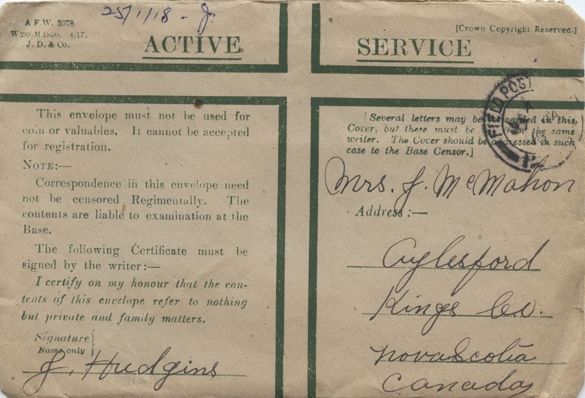 25/1/18 - J.
A.F.W. 3078.
4/17.
J. D. & Co.
[Crown Copyright Reserved.]
ACTIVE SERVICE
This envelope must not be used for
coin or valuables. It cannot be accepted
for registration.
NOTE:—
Correspondence in this envelope need
not be censored Regimentally. The
contents are liable to examination at the
Base.
The following Certificate must be
signed by the writer:—
I certify on my honour that the con-
tents of this envelope refer to nothing
but private and family matters.
Signature
Name only
J. Hudgins
FIELD POST
[Several letters may be in this
Cover, but these must be the same
writer. The Cover should be addressed in such
case to the Base Censor.]
Mrs. J. McMahon
Address:—
Aylesford
Kings Co.
Nova Scotia
Canada